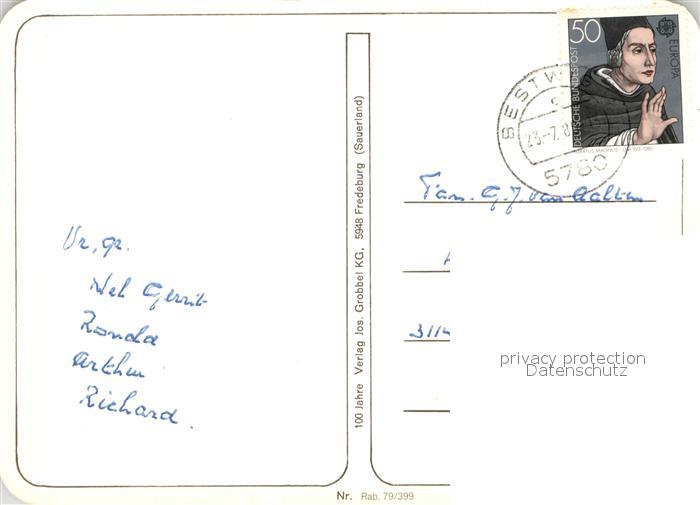 50
EUROPA
DEUTSCHE BUNDESPOST
BESTW
23.-7.8
5780
Fam. G.J. van Aalten
Vr. gr.
Nel Gerrit
Ronda
Arthur
Richard.
3114
privacy protection
Datenschutz
100 Jahre Verlag Jos. Grobbel KG, 5948 Fredeburg (Sauerland)
Nr. Rab. 79/399